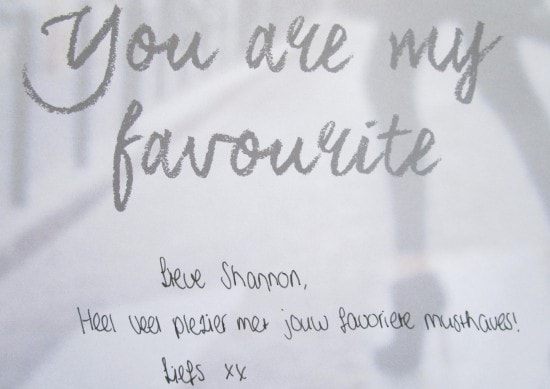 You are my
favourite
Lieve Shannon,
Heel veel plezier met jouw favoriete musthaves!
Liefs xx